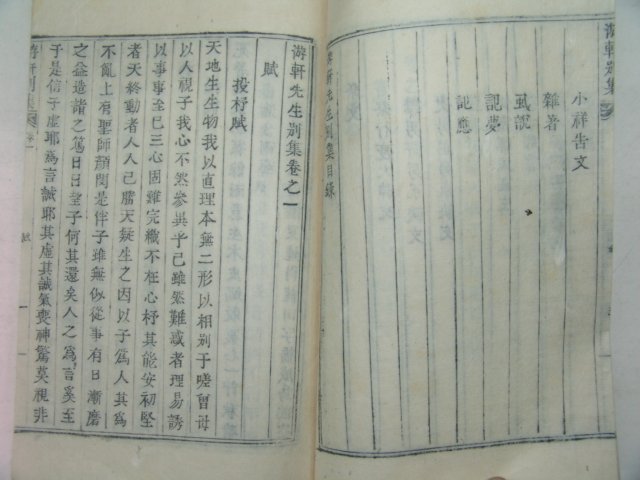 小祥告文
雜著
虱說
記夢
記應
游軒先生別集目錄
游軒先生別集卷之一
賦
投杼賦
天地生生物我以直理本無二形以相別于嗟曾母
以人視子我心不然參異乎己雖然難惑者理易誘
以事事至已三心固難完織不在心杼其能安初堅
者天終動者人人己旣天疑生之因以子爲人其爲
不亂上有聖師顏閔是伴子雖無似從事有日漸磨
之益造諸之篤日日望子何其還矣人之爲言奚至
于是信子虛耶爲言誠耶其虛其誠氣喪神驚莫視非